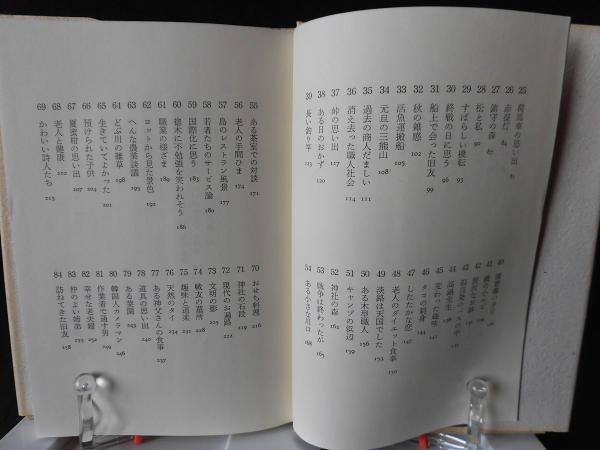 25 荷馬車の思い出
26 赤提灯
27 鎮守の森
28 松と私 90
29 すばらしい機転 93
30 終戦の日に思う 96
31 船上で会った旧友
32 秋の雑感 99
33 活魚運搬船 103
34 元旦の三熊山 108
35 過去の商人だましい 111
36 消え去った職人社会 114
37 峠の思い出 117
38 ある日のおかず 120
39 長い釣り竿 123
40
41
42
43
44 高瀬先生
45 変わった趣味
46 タコの刺身
47 したたかな恋 147
48 老人のダイエット食事 150
49 淡路は天国でした 153
50 ある木型職人 156
51 キャンプの浜辺 159
52 神社の森 162
53 戦争は終わったが 165
54 ある小さな川口 168
55 ある茶室での対談 171
56 老人の手間ひま 174
57 島のレストラン風景 177
58 若者たちのサービス論 180
59 国際化に思う 183
60 徳木に不勉強を笑われそう 186
61 職業の様ざま 189
62 ヨットから見た景色 192
63 へんな農業談議 195
64 どぶ川の雑草 198
65 生きていてよかった 201
66 預けられた子供 204
67 夏蜜柑の思い出 207
68 老人と健康 210
69 かわいい詩人たち 213
70 おせち料理 216
71 神社の石段 219
72 現代のお遍路 222
73 文明の影 225
74 戦友の墓所 228
75 趣味と道楽 231
76 天然のタイ 234
77 ある神父さんの食事 237
78 道具の思い出 240
79 ある菜園 243
80 韓国人カメラマン 246
81 作業着で通す男 249
82 幸せな老夫婦 252
83 仲のよい姉弟 255
84 訪ねてきた旧友 258